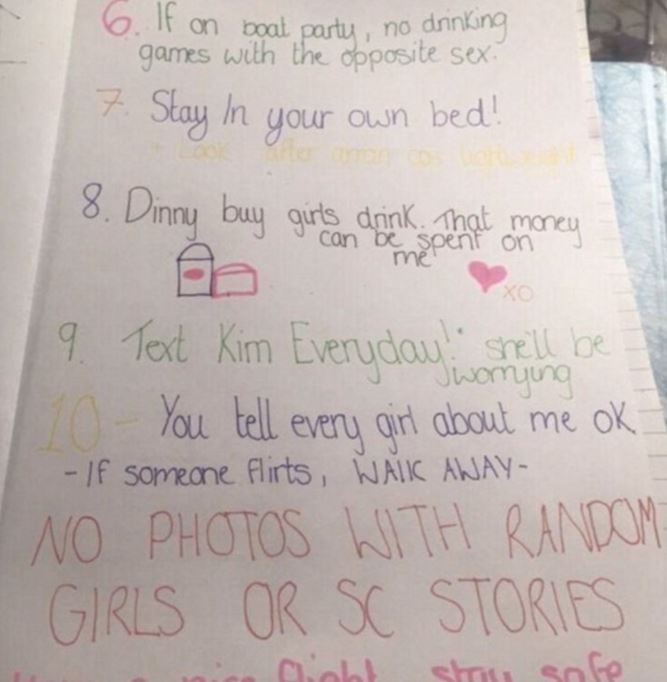 6. If on boat party, no drinking
games with the opposite sex.
7. Stay In your own bed!
+ Look after arran cos lightweight
8. Dinny buy girls drink. That money
can be spent on
me
XO
9. Text Kim Everyday!" she'll be
worrying
10 - You tell every girl about me OK
- If someone flirts, WALK AWAY-
NO PHOTOS WITH RANDOM
GIRLS OR SC STORIES
nice flight stay safe